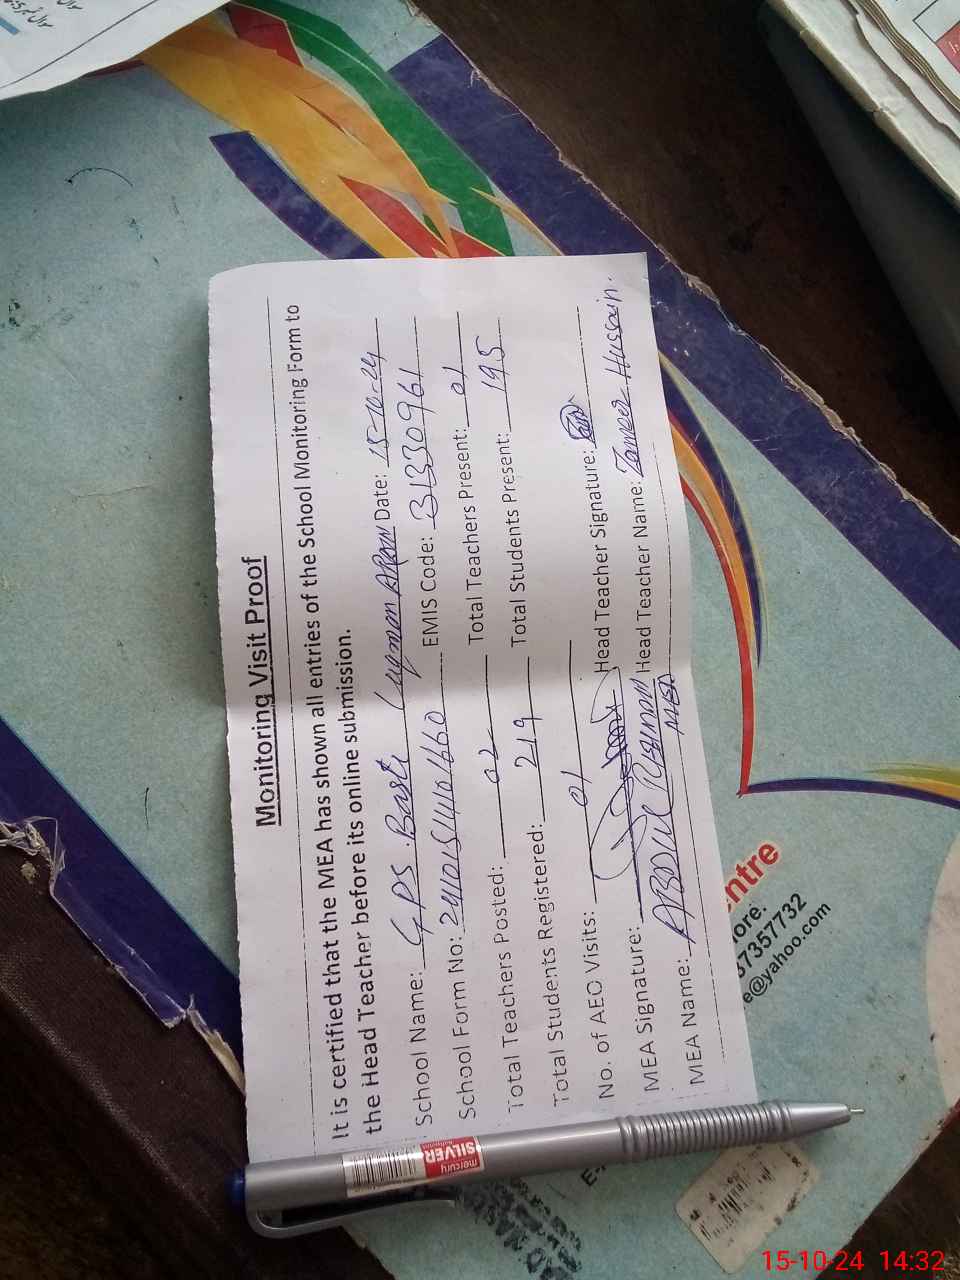 Monitoring Visit Proof
It is certified that the MEA has shown all entries of the School Monitoring Form to
the Head Teacher before its online submission.
School Name: GPS Basti Luqman Arain Date: 15-10-24
School Form No: EMIS Code: 31330961
Total Teachers Posted: 02 Total Teachers Present: 01
Total Students Registered: 219 Total Students Present: 195
No. of AEO Visits: 01
MEA Signature: Head Teacher Signature:
MEA Name: ABDUL Head Teacher Name: Zameer Hussain.
MEA
mercury
SILVER
ntre
ore.
37357732
e@yahoo.com
15-10-24 14:32